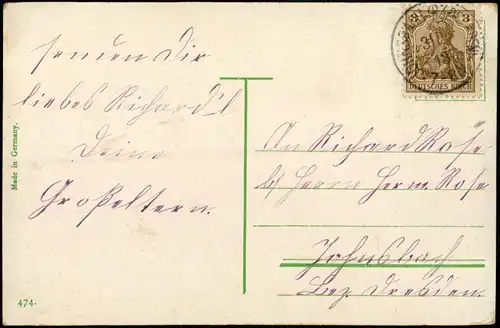 senden Dir
liebes Richard'l
Deine
Großeltern.
Made in Germany.
474.
3 3
DEUTSCHES REICH
An Richard Rose
b/ Herrn Herm. Rose
Johnsbach
Bez. Dresden.